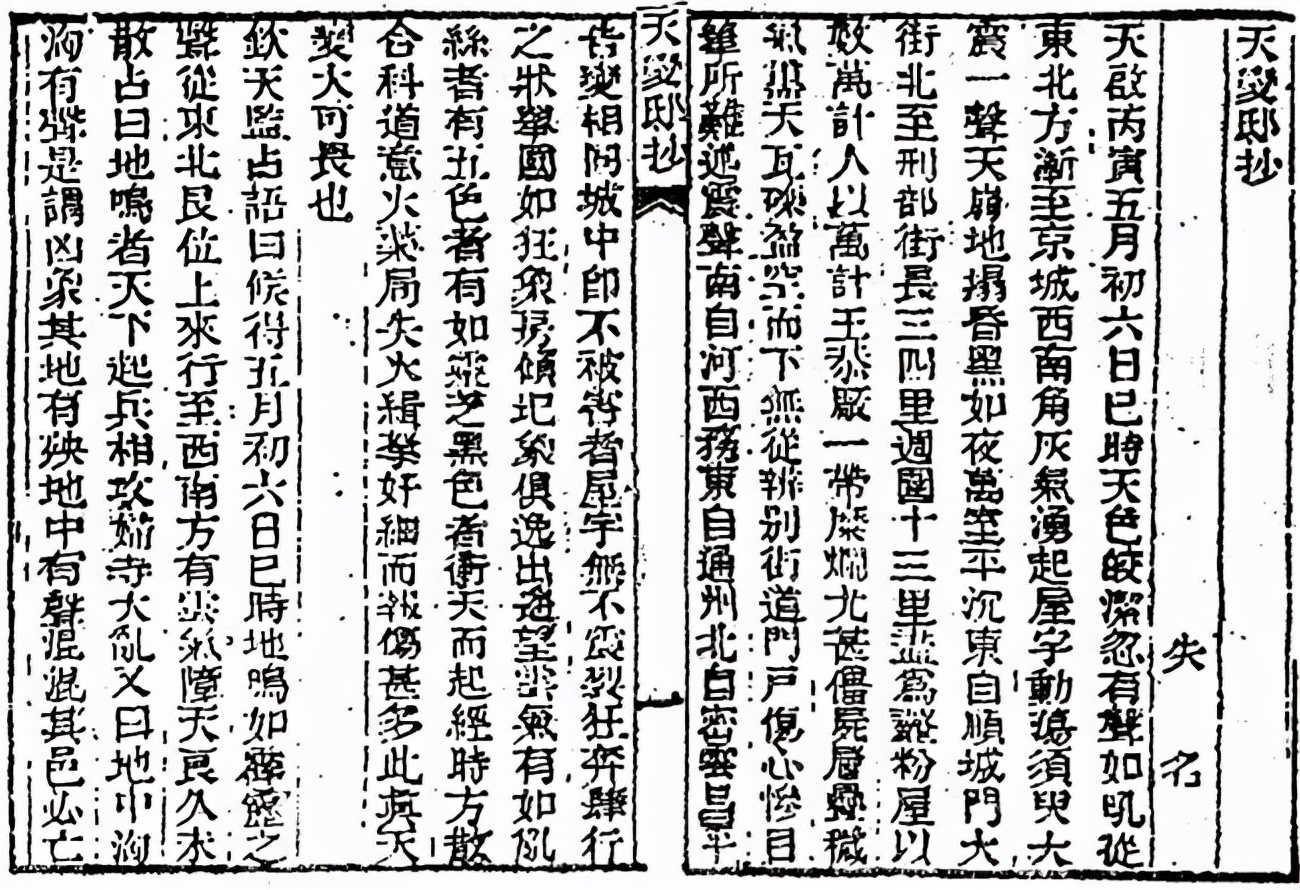 天變邸抄
失名
天啟丙寅五月初六日巳時天色皎潔忽有聲如吼從
東北方漸至京城西南角灰氣湧起屋宇動蕩須臾大
震一聲天崩地塌昏黑如夜萬室平沉東自順城門大
街北至刑部街長三四里週圍十三里盡為齏粉屋以
數萬計人以萬計王恭廠一帶糜爛尤甚僵屍層疊穢
氣熏天瓦礫盈空而下無從辨別街道門戶傷心慘目
筆所難述震聲南自河西務東自通州北自密雲昌平
天變邸抄
一
告變相同城中即不被害者屋宇無不震裂狂奔肆行
之狀舉國如狂象房傾圮象俱逸出遙望雲氣有如亂
絲者有五色者有如靈芝黑色者衝天而起經時方散
合科道意火藥局失火緝拏奸細而報傷甚多此真天
變大可畏也
欽天監占語曰候得五月初六日巳時地鳴如霹靂之
聲從東北艮位上來行至西南方有雲氣障天良久未
散占曰地鳴者天下起兵相攻婦寺大亂又曰地中洶
洶有聲是謂凶象其地有殃地中有聲混混其邑必亡